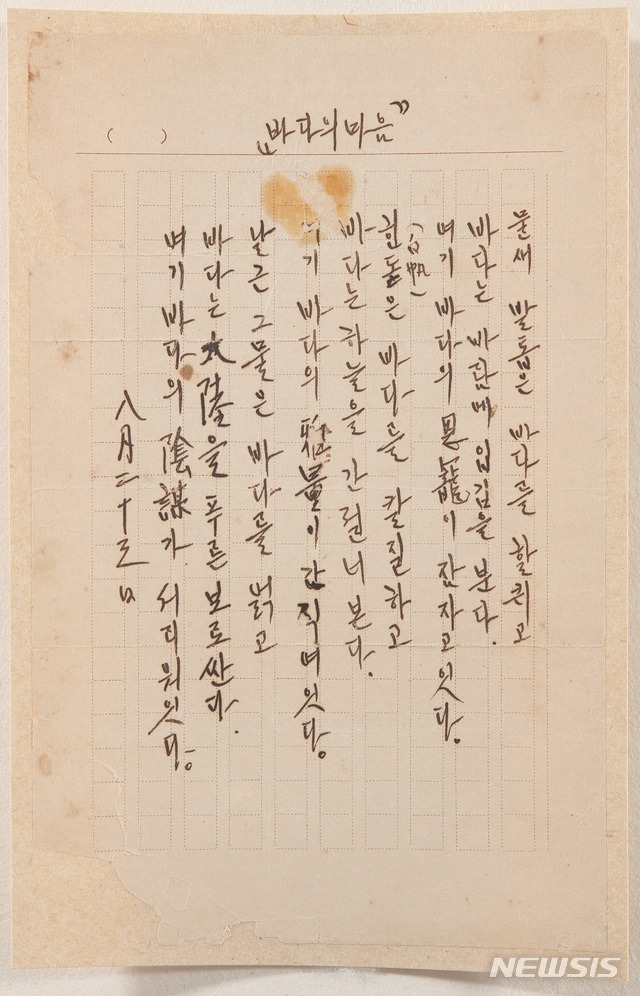 ( )
„바다의마음”
물새 발톱은 바다를 할퀴고
바다는 바람에 입김을 분다.
여기 바다의 恩寵이 잠자고잇다。
(白帆)
흰돛은 바다를 칼질하고
바다는 하늘을 간질너본다.
여기 바다의 雅量이 간직여잇다。
날근 그물은 바다를 얽고
바다는 大陸을 푸른 보로싼다.
여기 바다의 陰謀가 서리워잇다。
八月二十三日
NEWSIS